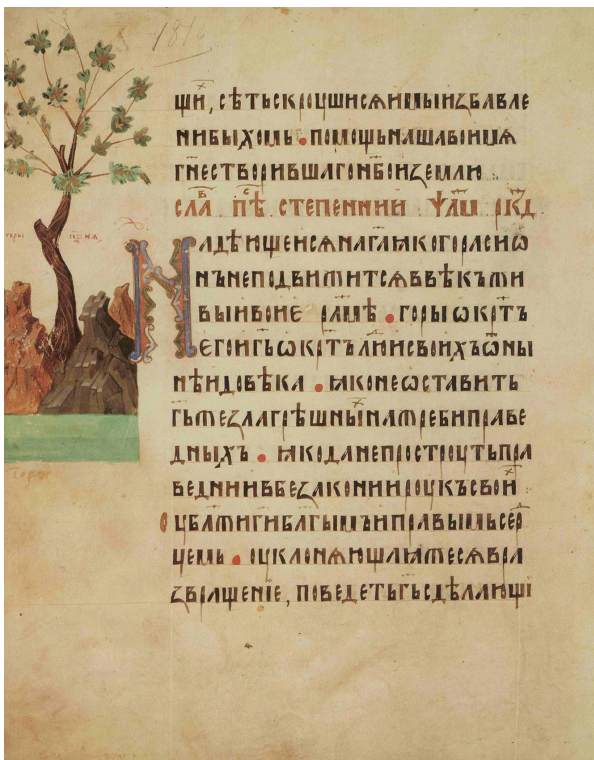 1816
щи҃, сѣтьскроушисѧимыиꙁбавле
нибыхомь • помощьнашавоимѧ
гн҃естворившагонб҃оиꙁемлю
сла҃в пѣ҃с степенний ѱал҃м рк҃д
Надѣищеисѧнагаꙗкогорасиѡ
нънеподвижитсѧввѣкъжи
выивоие р҃лмѣ • горыѡкр҃тъ
егоиг҃ьѡкр҃тълю҃иисвоихъѿны
нѣидовѣка • ꙗконеѡставить
г҃ьжеꙁлагрѣшны҃нажребиправе
дныхъ • ꙗкоданепростроутьпра
ведниивбеꙁакониироукъсвои҃
оубл҃жиг҃иблг҃ымъиправымьсер҃д
цемь • оуклонѧющаꙗжесѧвра
ꙁвращение, поведетьг҃ьсдѣлающі
горы